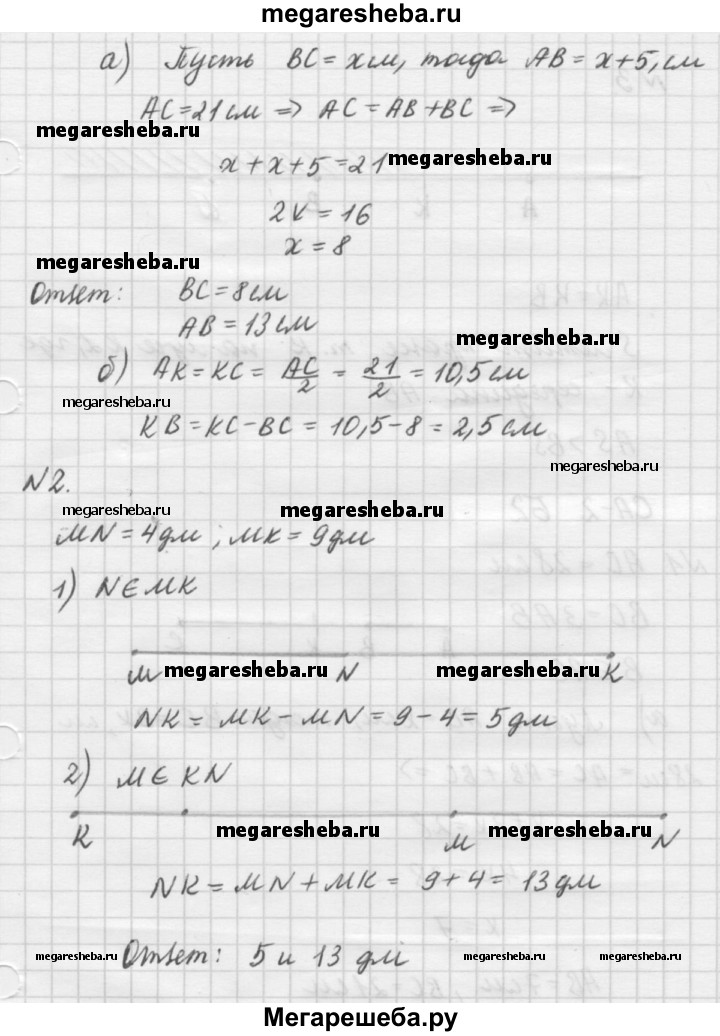 megaresheba.ru
а) Пусть BC = x см, тогда AB = x+5, см
AC = 21 см => AC = AB + BC =>
megaresheba.ru
x + x + 5 = 21 megaresheba.ru
2x = 16
x = 8
megaresheba.ru
Ответ: BC = 8 см
AB = 13 см
megaresheba.ru
б) AK = KC = AC/2 = 21/2 = 10,5 см
megaresheba.ru
KB = KC - BC = 10,5 - 8 = 2,5 см
megaresheba.ru
N2.
megaresheba.ru megaresheba.ru
MN = 4 дм ; MK = 9 дм
1) N ∈ MK
M megaresheba.ru N megaresheba.ru K
NK = MK - MN = 9 - 4 = 5 дм
2) M ∈ KN
K megaresheba.ru M megaresheba.ru N
NK = MN + MK = 9 + 4 = 13 дм
megaresheba.ru Ответ: 5 и 13 дм megaresheba.ru megaresheba.ru
Мегарешеба.ру